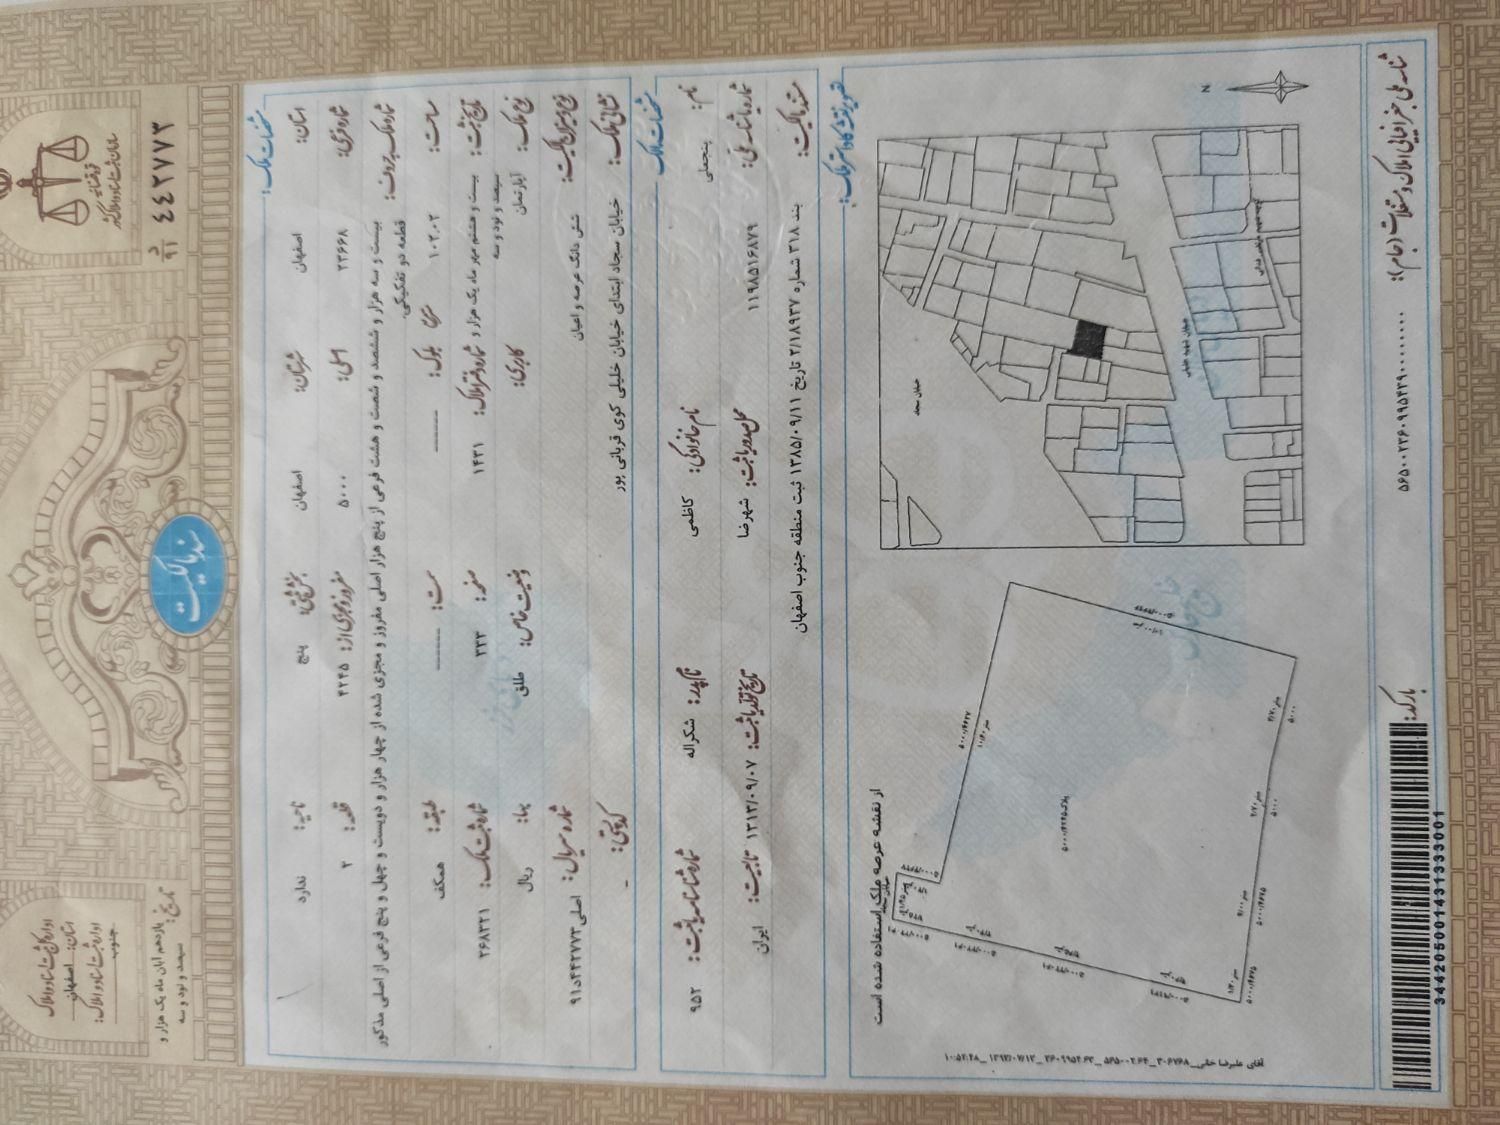 قوه قضائیه
سازمان ثبت اسناد و املاک کشور
د
۹۱
۴۴۲۷۷۳
سند مالکیت
اداره کل ثبت اسناد و املاک
استان: اصفهان
اداره ثبت اسناد و املاک:
جنوب
تاریخ: یازدهم آبان ماه یک هزار و
سیصد و نود و سه
مشخصات ملک:
استان: اصفهان شهرستان: اصفهان بخش ثبتی: پنج ناحیه: ندارد
شماره فرعی: ۲۳۶۶۸ اصلی: ۵۰۰۰ مفروز و مجزی از: ۴۲۴۵ قطعه: ۲
شماره ملک به حروف: بیست و سه هزار و ششصد و شصت و هشت فرعی از پنج هزار اصلی مفروز و مجزی شده از چهار هزار و دویست و چهل و پنج فرعی از اصلی مذکور
قطعه دو تفکیکی.
مساحت: ۱۰۲.۰۲ متر مربع بلوک: ---------- سمت: ---------- طبقه: همکف
تاریخ ثبت: بیست و هشتم مهر ماه یک هزار و سیصد و نود و سه شماره دفتر املاک: ۱۴۳۱ صفحه: ۳۳۳ شماره ثبت ملک: ۲۶۸۳۲۱
نوع ملک: آپارتمان کاربری: وضعیت خاص: طلق بها: ریال
نوع و میزان مالکیت: شش دانگ عرصه و اعیان شماره سریال: اصلی ۹۱د۴۴۲۷۷۳
نشانی ملک: خیابان سجاد ابتدای خیابان خلیلی کوی قربانی پور کدپستی: -
مشخصات مالک
نام: پنجعلی نام خانوادگی: کاظمی نام پدر: شکراله شماره شناسنامه یا ثبت: ۹۵۲
شماره یا شناسه ملی: ۱۱۹۸۵۱۶۸۷۹ محل صدور یا ثبت: شهرضا تاریخ تولد یا ثبت: ۱۳۱۳/۰۹/۰۷ تابعیت: ایران
مستند مالکیت: بند ۳۱۸ شماره ۲/۱۸۹۳۷ تاریخ ۱۳۸۵/۰۹/۱۱ ثبت منطقه جنوب اصفهان
تصویر نقشه کاداستر ملک:
از نقشه عرصه ملک استفاده شده است
N
خیابان سجاد
خیابان شهید خلیلی
پلاک ۵۰۰۰/۴۲۴۵
شناسه ملی جغرافیایی املاک و مستغلات (جام):
بارکد:
34420500143131333001